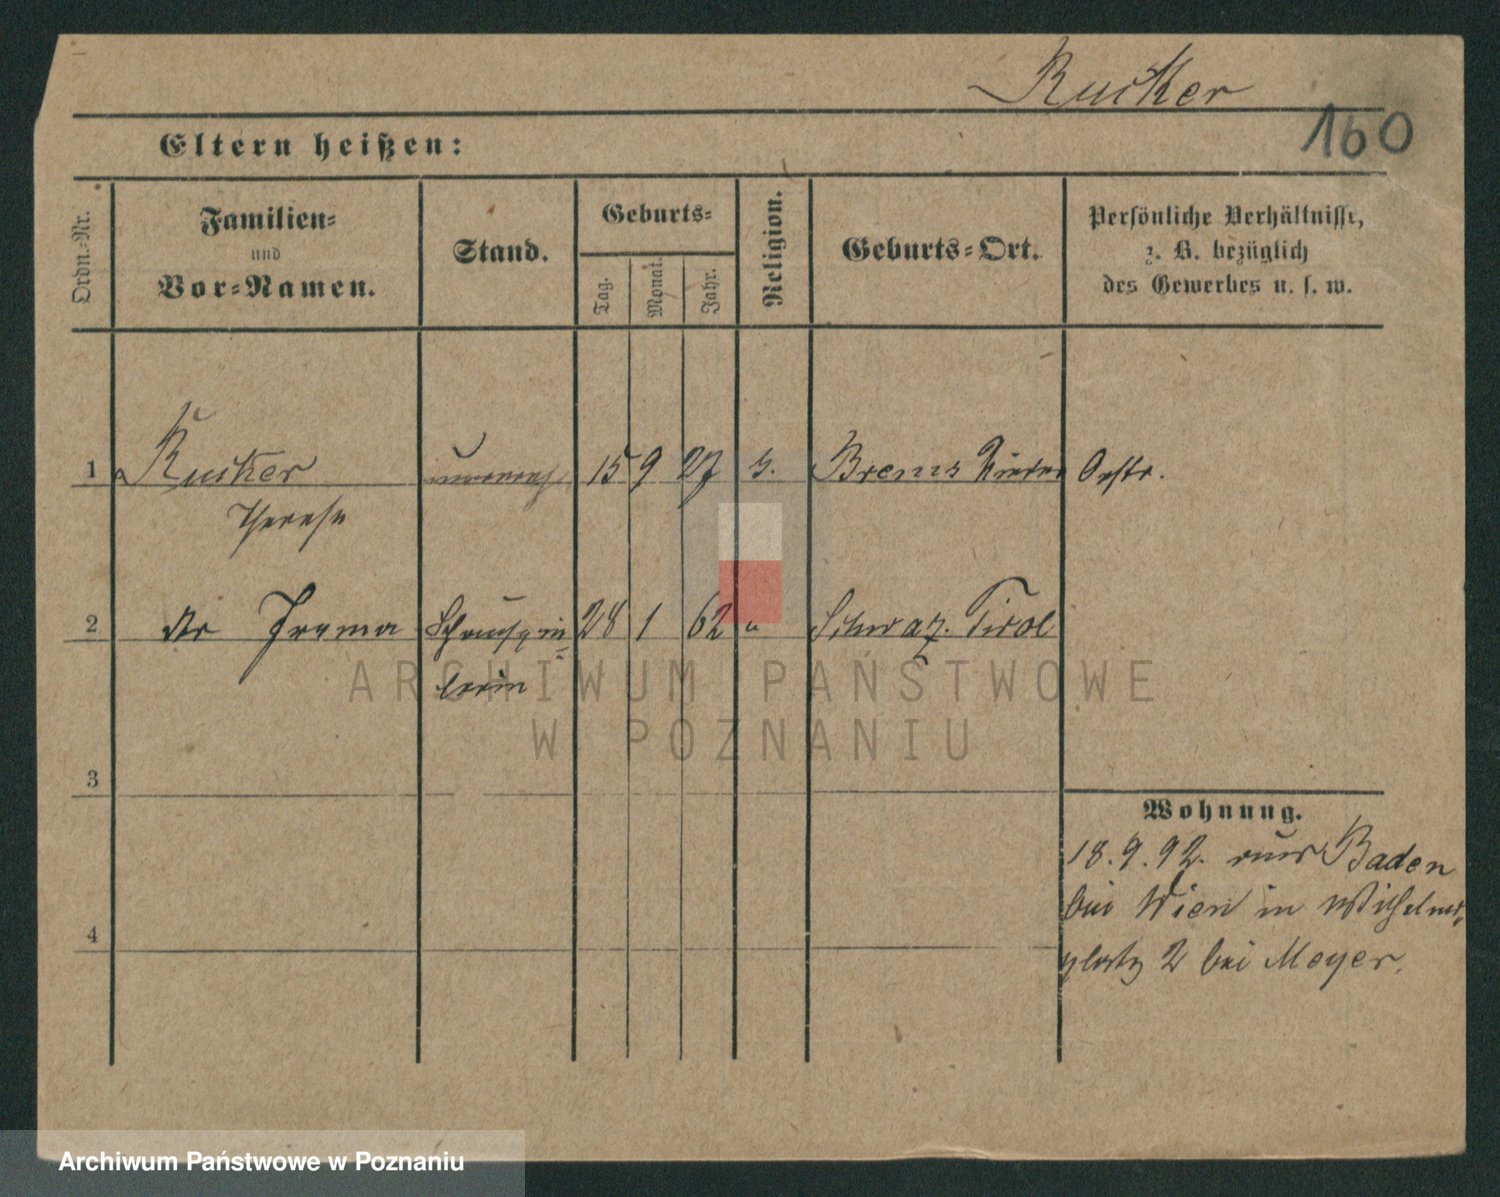 Rucker
160
Eltern heißen:
Ordn.-Nr.
Familien-
und
Vor-Namen.
Stand.
Geburts-
Tag.
Monat.
Jahr.
Religion.
Geburts-Ort.
Persönliche Verhältnisse,
z. B. bezüglich
des Gewerbes u. s. w.
1 Rucker 15 9 27 Oestr.
Therese
2 Schausp 28 1 62 " Schwaz. Tirol
lerin
3
4
Wohnung.
18.9.92. aus Baden
bei Wien in Wilhelms-
platz 2 bei Meyer.
ARCHIWUM PAŃSTWOWE
W POZNANIU
Archiwum Państwowe w Poznaniu